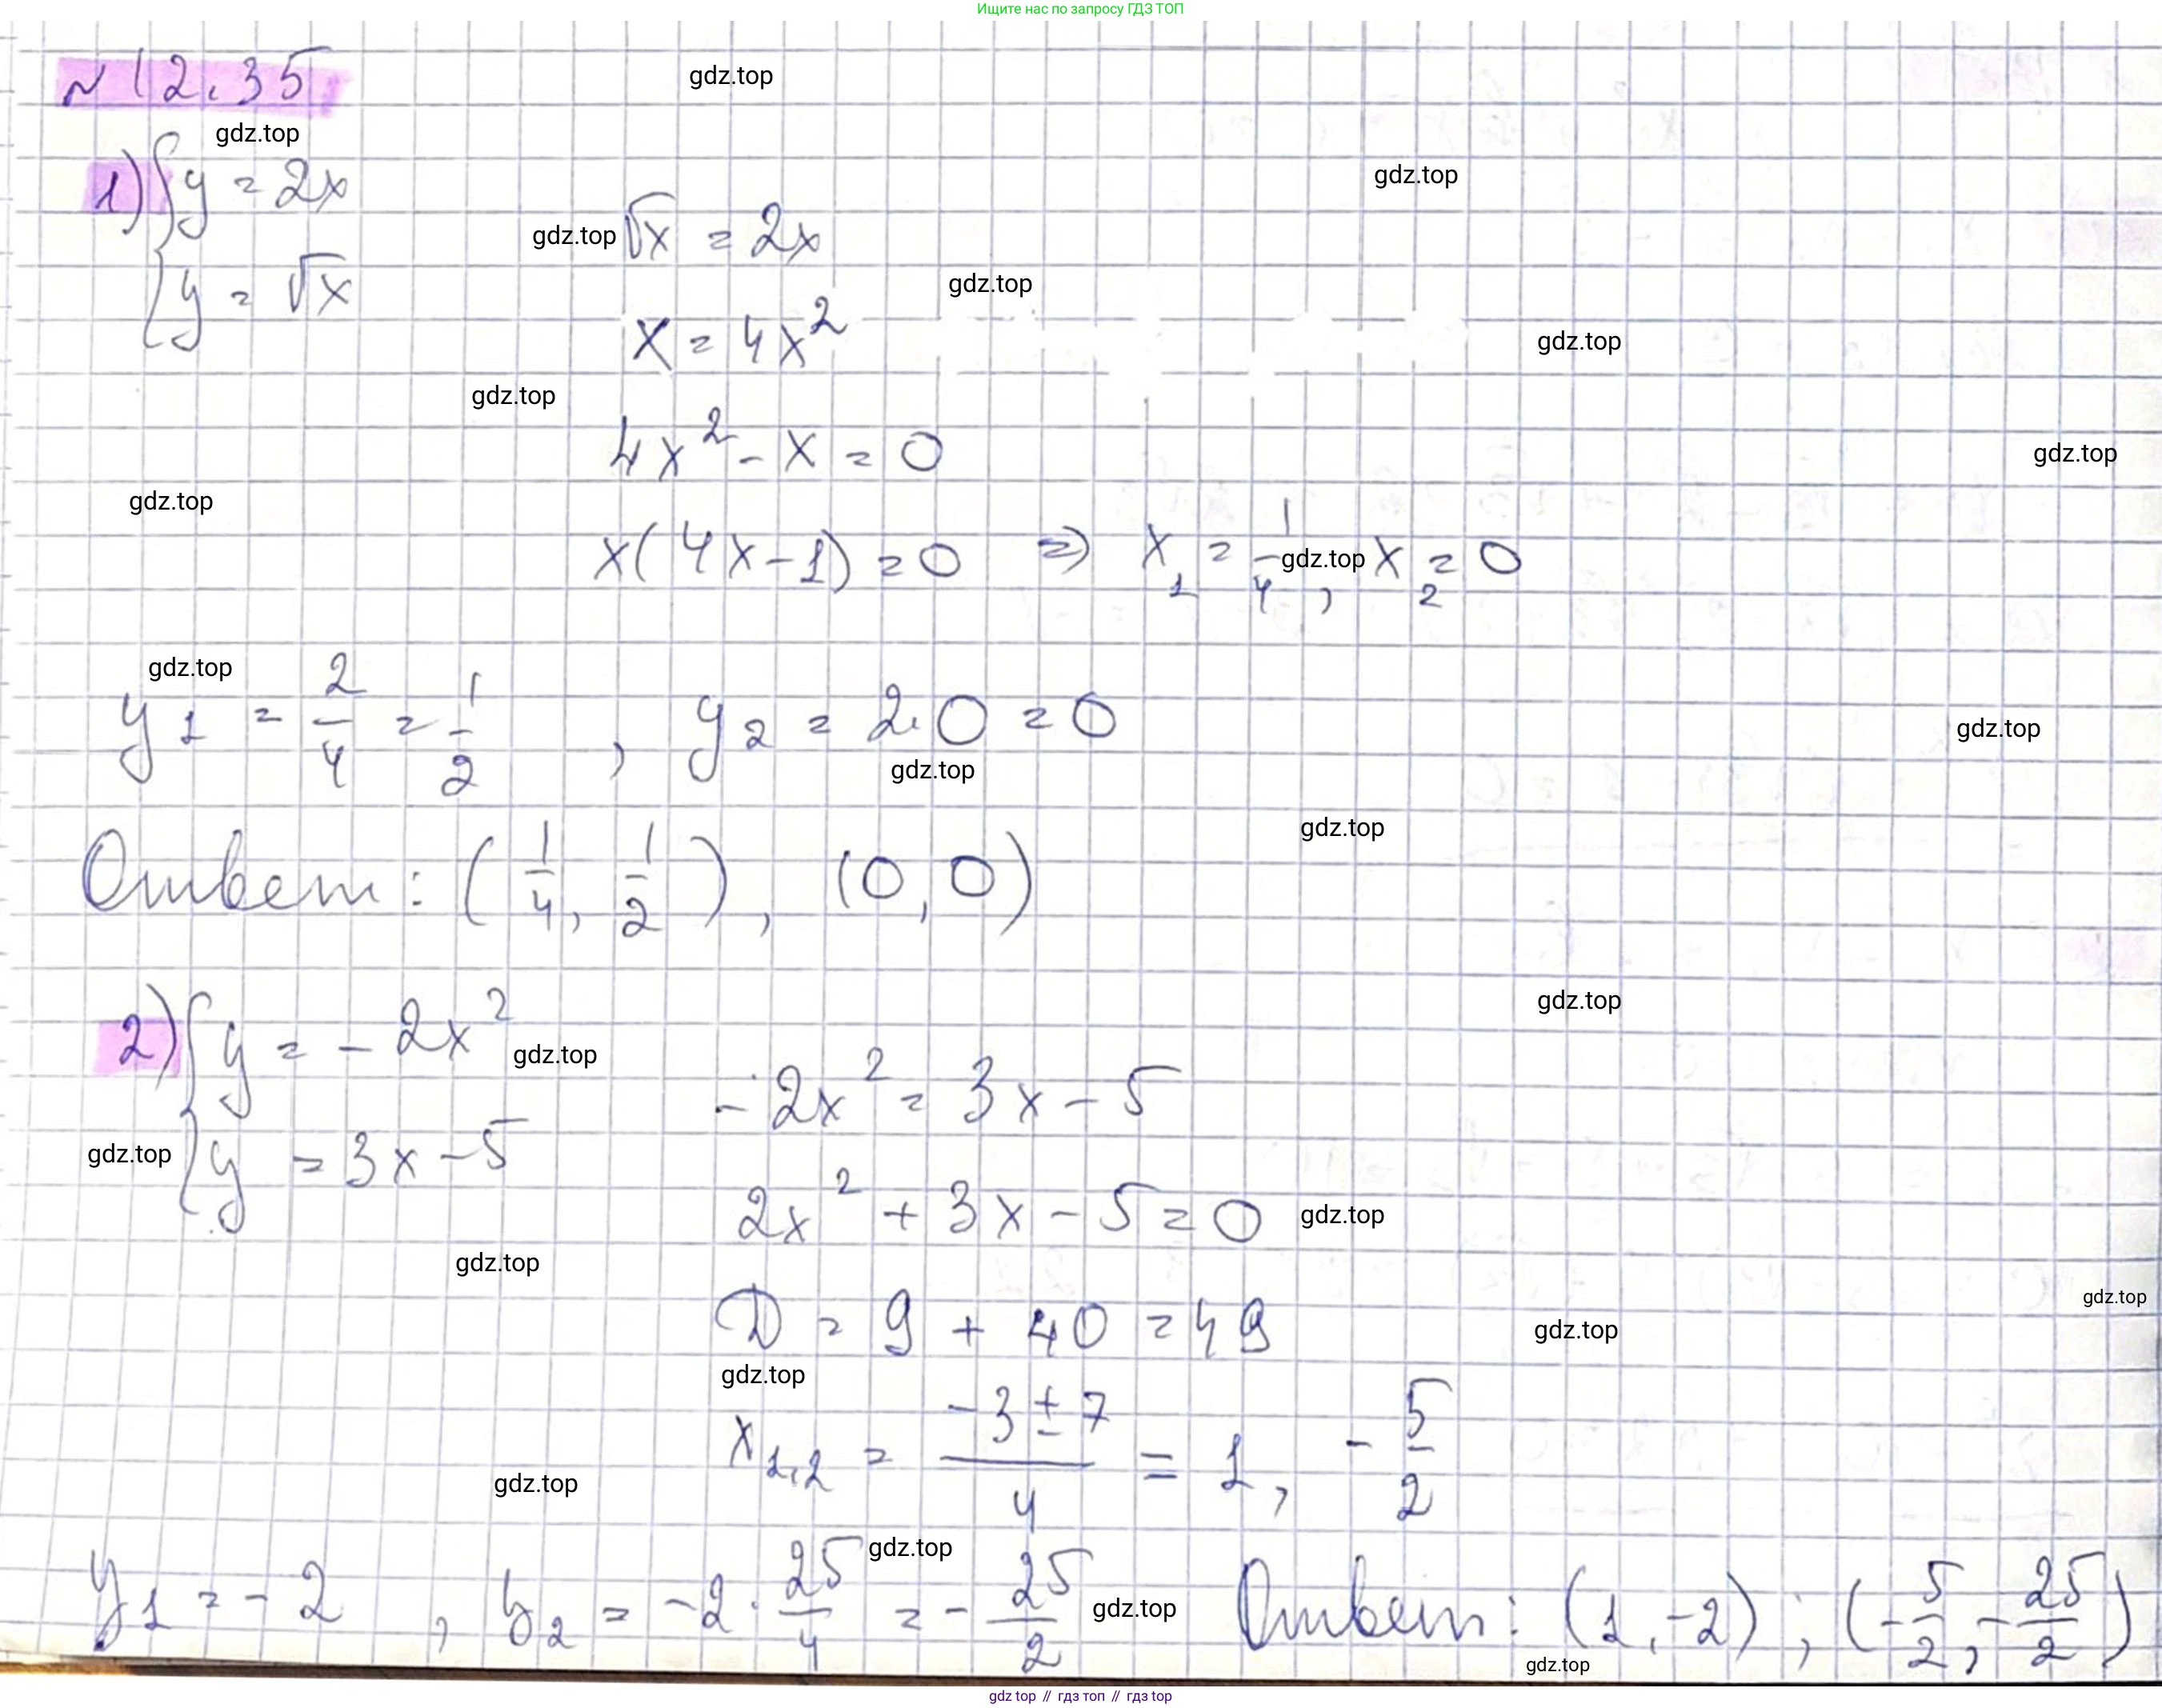 Ищите нас по запросу ГДЗ ТОП
№ 12.35
gdz.top
gdz.top
1) { y = 2x
gdz.top
gdz.top √x = 2x
y = √x
gdz.top
x = 4x²
gdz.top
gdz.top
4x² - x = 0
gdz.top
gdz.top
x(4x-1) = 0 => x₁ = 1/4, x₂ = 0
gdz.top
gdz.top
y₁ = 2/4 = 1/2 , y₂ = 2·0 = 0
gdz.top
gdz.top
gdz.top
Ответ: (1/4, 1/2), (0, 0)
gdz.top
2) { y = -2x²
gdz.top
-2x² = 3x - 5
gdz.top
y = 3x - 5
2x² + 3x - 5 = 0
gdz.top
gdz.top
gdz.top
D = 9 + 40 = 49
gdz.top
gdz.top
x₁,₂ = (-3 ± 7)/4 = 1, -5/2
gdz.top
gdz.top
y₁ = -2 , y₂ = -2 · 25/4 = -25/2
gdz.top
Ответ: (1, -2); (-5/2, -25/2)
gdz.top
gdz top // гдз топ // гдз top